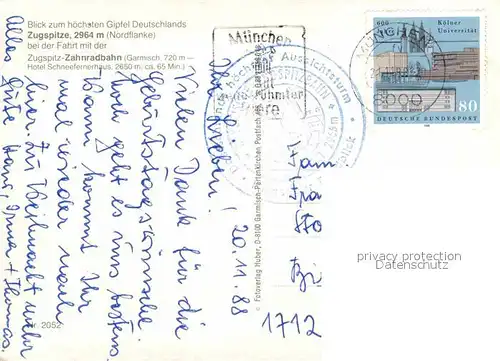 Blick zum höchsten Gipfel Deutschlands
Zugspitze, 2964 m (Nordflanke)
bei der Fahrt mit der
Zugspitz-Zahnradbahn (Garmisch, 720 m –
Hotel Schneefernerhaus, 2650 m, ca. 65 Min.)
Ihr Lieben!
20.11.88
Vielen Dank für die
Geburtstagswünsche.
Noch geht es uns bestens.
Wann kommt Ihr
mal wieder nach
hier? Zu Weihnacht
Alles
Gute Hans, Irma + Thomas
Nr. 2052
© Fotoverlag Huber, D-8100 Garmisch-Partenkirchen Postfach
München
höchster Aussichtsturm
MÜNCHEN
8000
600
Kölner
Universität
80
DEUTSCHE BUNDESPOST
Fam
Fra
Bi
1712
privacy protection
Datenschutz